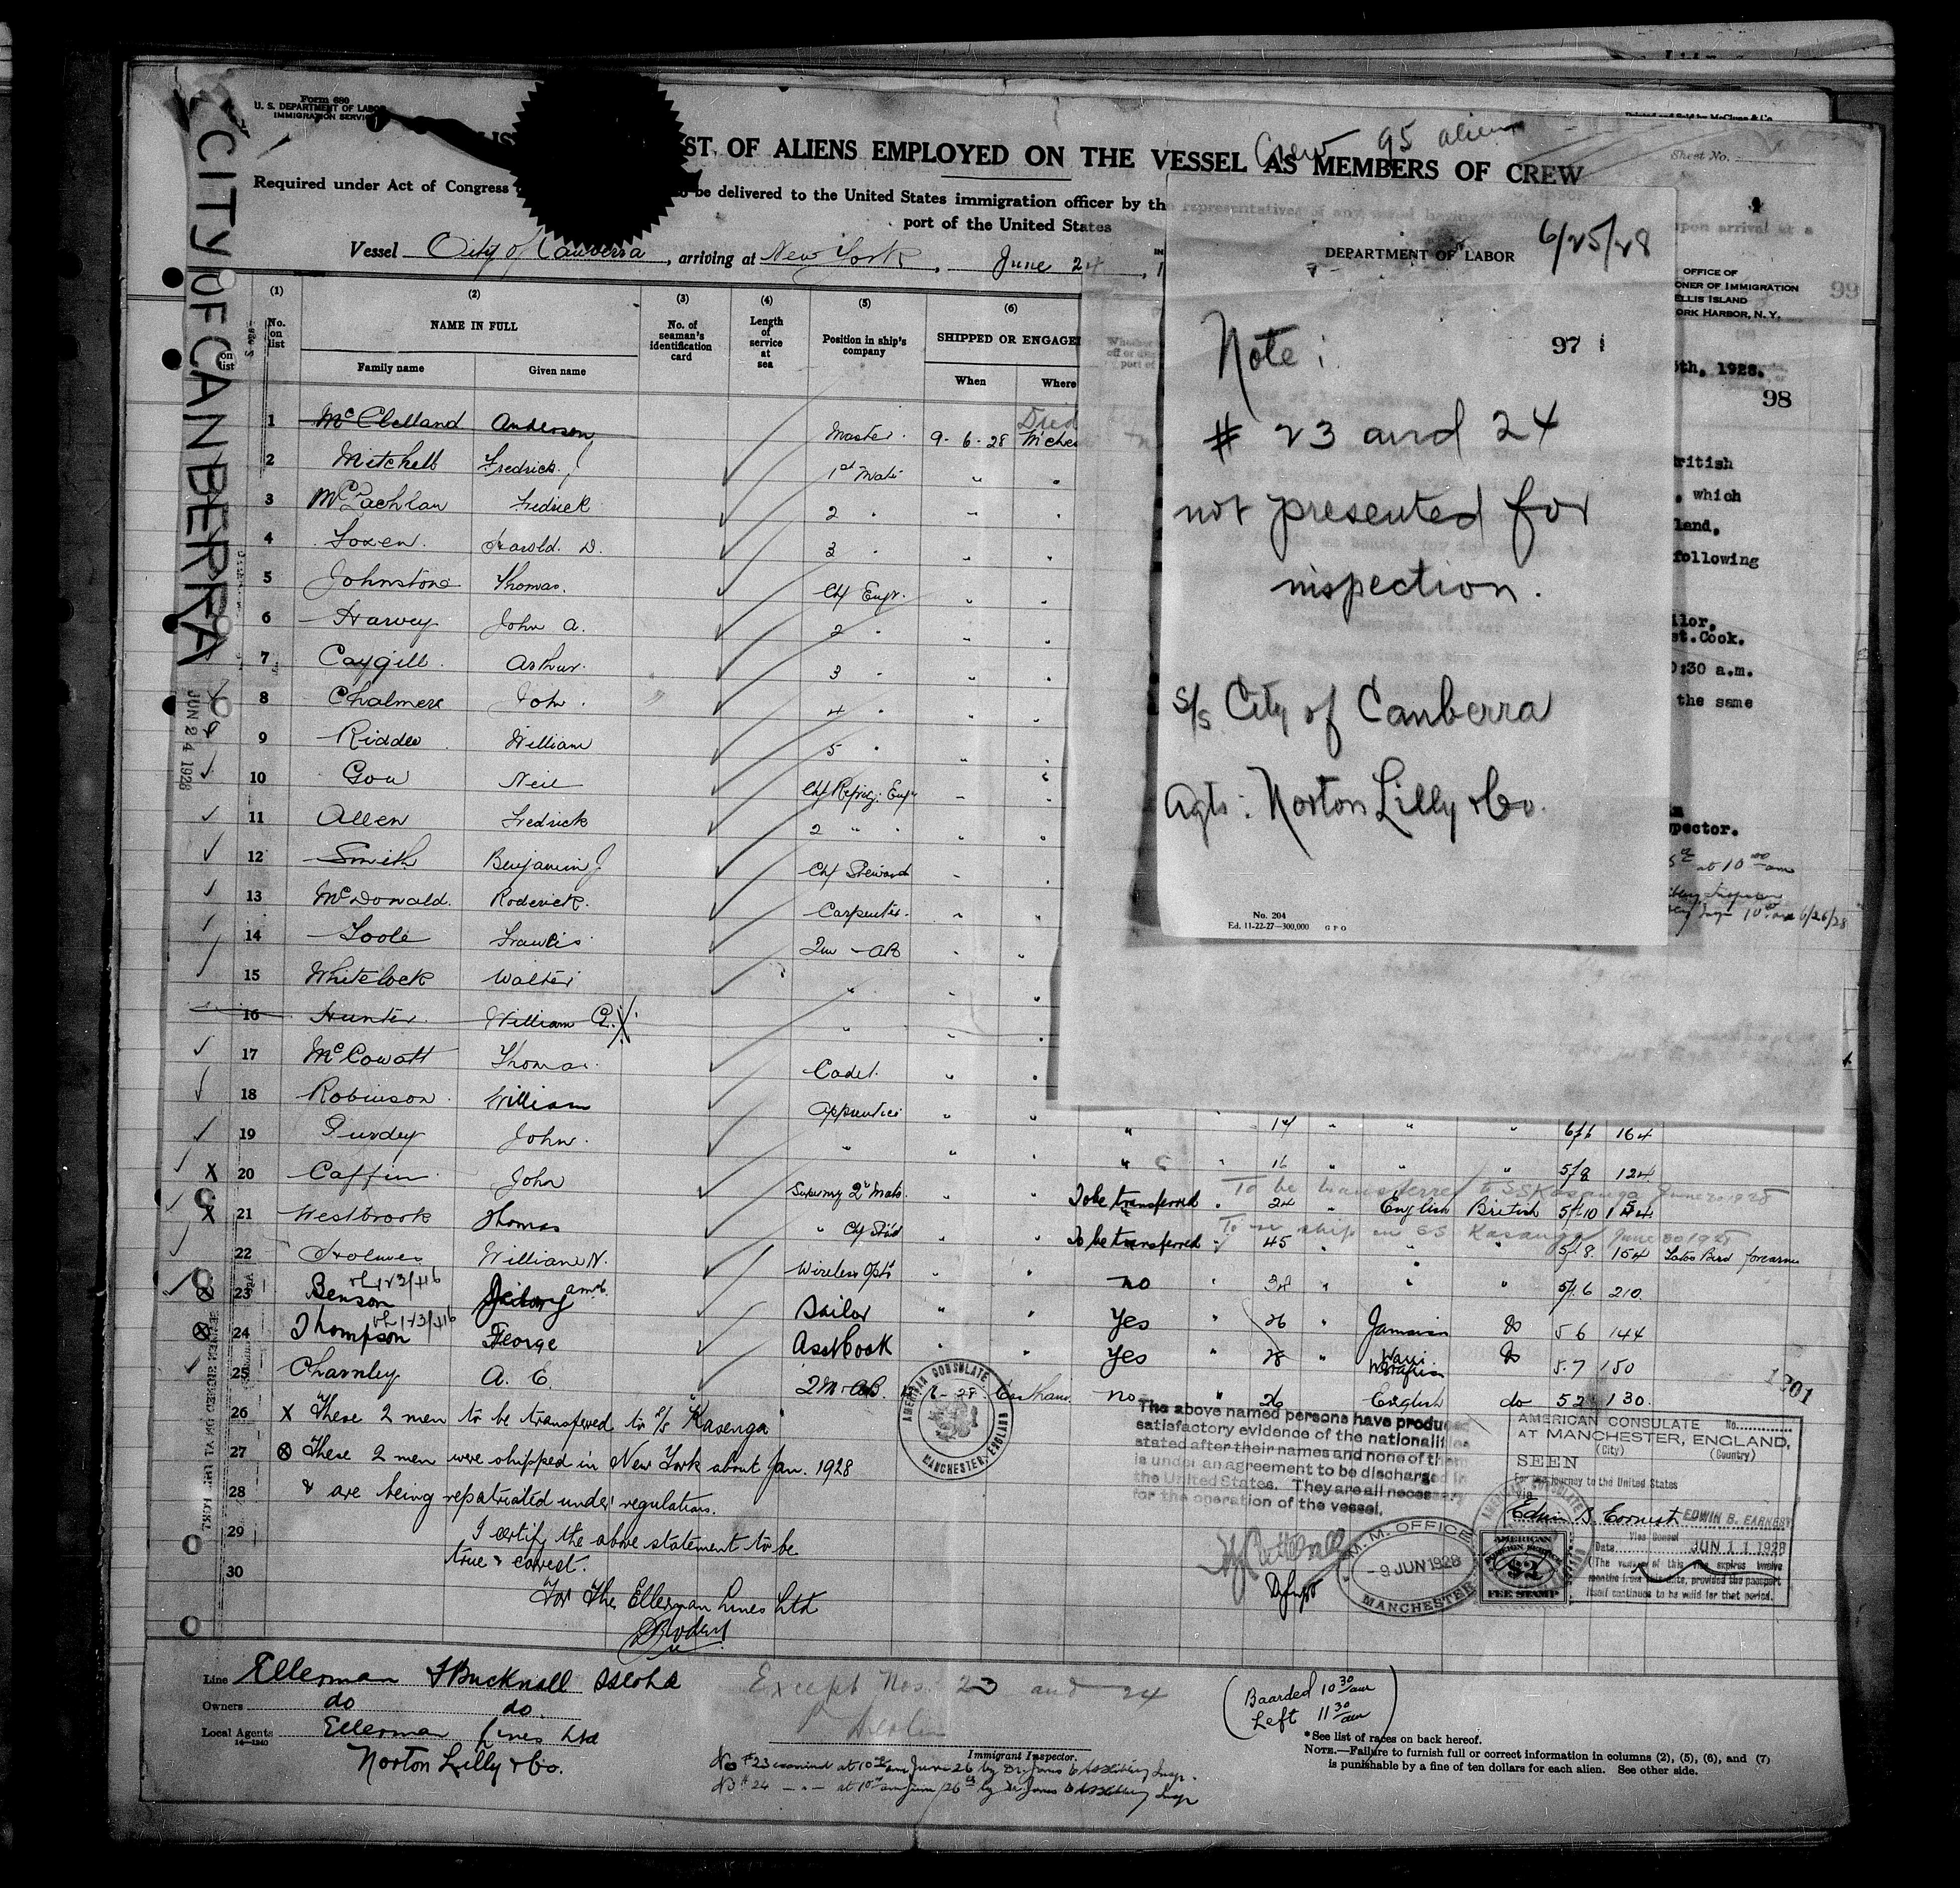 Form 680
U. S. DEPARTMENT OF LABOR
IMMIGRATION SERVICE
CITY OF CANBERRA
JUN 24 1928
Crew 95 aliens
ST OF ALIENS EMPLOYED ON THE VESSEL AS MEMBERS OF CREW
Sheet No.
Required under Act of Congress be delivered to the United States immigration officer by the representatives of any vessel having upon arrival at a
port of the United States
Vessel City of Canberra, arriving at New York, June 24, 1
(1) (2) (3) (4) (5) (6)
No. on list NAME IN FULL No. of seaman's identification card Length of service at sea Position in ship's company SHIPPED OR ENGAGE
Family name Given name When Where
1 McClelland Anderson Master 9-6-28 Died
2 Mitchell Fredrick 1st Mate "
3 McLachlan Fredrick 2 "
4 Harold D. 3 "
5 Johnstone Thomas. Chf Engr. "
6 Harvey John A. 2 "
7 Caygill Arthur. 3 "
8 Chalmers John. 4 "
9 William 5 "
10 Gow Neil Chf Refrig. Engr
11 Allen Fredrick 2 " "
12 Smith Benjamin J Chf Steward
13 McDonald. Roderick. Carpenter.
14 Toole Francis AB
15 Whitelock Walter "
16 Hunter William G. X "
17 McCowatt Thomas. Cadet.
18 Robinson William Apprentice " " 14 " " " 5/6 164
19 Purdey John. " " " 16 " " " 5/8 124
To be transferred to SS Kasenga June 20 1928
X 20 Caffin John Supernry 2nd Mate. " To be transferred " 24 " English British 5/10 154
X 21 Westbrook Thomas " Chf Stwd " To be transferred 45 " " " 5/8 154 Tatoo Bird forearm
22 Holmes William N. Wireless Optr " no " " " " 5/6 210
23 Benson Sailor " Yes " 26 " Jamaica do 5 6 144
24 Thompson George Asst Cook " Yes " 28 " do 5.7 150
25 Charnley A. E. AB. no " 26 English do 5 2 130
26 X These 2 men to be transferred to s/s "Kasenga"
27 ⊗ These 2 men were shipped in New York about Jan. 1928
28 & are being repatriated under regulations.
29 I certify the above statement to be
true & correct.
30 For The Ellerman Lines Ltd
AMERICAN CONSULATE MANCHESTER, ENGLAND
The above named persons have produced
satisfactory evidence of the nationalities
stated after their names and none of them
is under an agreement to be discharged in
the United States. They are all necessary
for the operation of the vessel.
M.M. OFFICE
-9 JUN 1928
MANCHESTER
1201
AMERICAN CONSULATE No.
AT MANCHESTER, ENGLAND,
(City) (Country)
SEEN
For the journey to the United States
Via
Edwin B. Earnest EDWIN B. EARNEST
Vice Consul
Date JUN 11 1928
(The validity of this visa expires twelve
months from this date, provided the passport
itself continues to be valid for that period.
AMERICAN
FOREIGN SERVICE
$2
FEE STAMP
Line Ellerman & Bucknall SS Co Ltd
Owners do do.
Local Agents Ellerman Lines Ltd
14—1240
Norton Lilly & Co.
Except Nos. 23 and 24
Immigrant Inspector.
No #23 examined at 10 am June 26 by Dr. Jones
No #24 — " — at 10 am June 26th by Dr. Jones
(Boarded 10 30 am
Left 11 30 am)
*See list of races on back hereof.
NOTE.—Failure to furnish full or correct information in columns (2), (5), (6), and (7)
is punishable by a fine of ten dollars for each alien. See other side.
DEPARTMENT OF LABOR
6/25/28
97
Note:
# 23 and 24
not presented for
inspection.
s/s City of Canberra
Agts: Norton Lilly & Co.
No. 204
Ed. 11-22-27—300,000 GPO
OFFICE OF
ONER OF IMMIGRATION
ELLIS ISLAND
ORK HARBOR, N. Y.
99
5th, 1928.
98
ritish
, which
land,
following
ilor,
st.Cook.
0:30 a.m.
the same
pector.
at 10 00 am
6/26/28